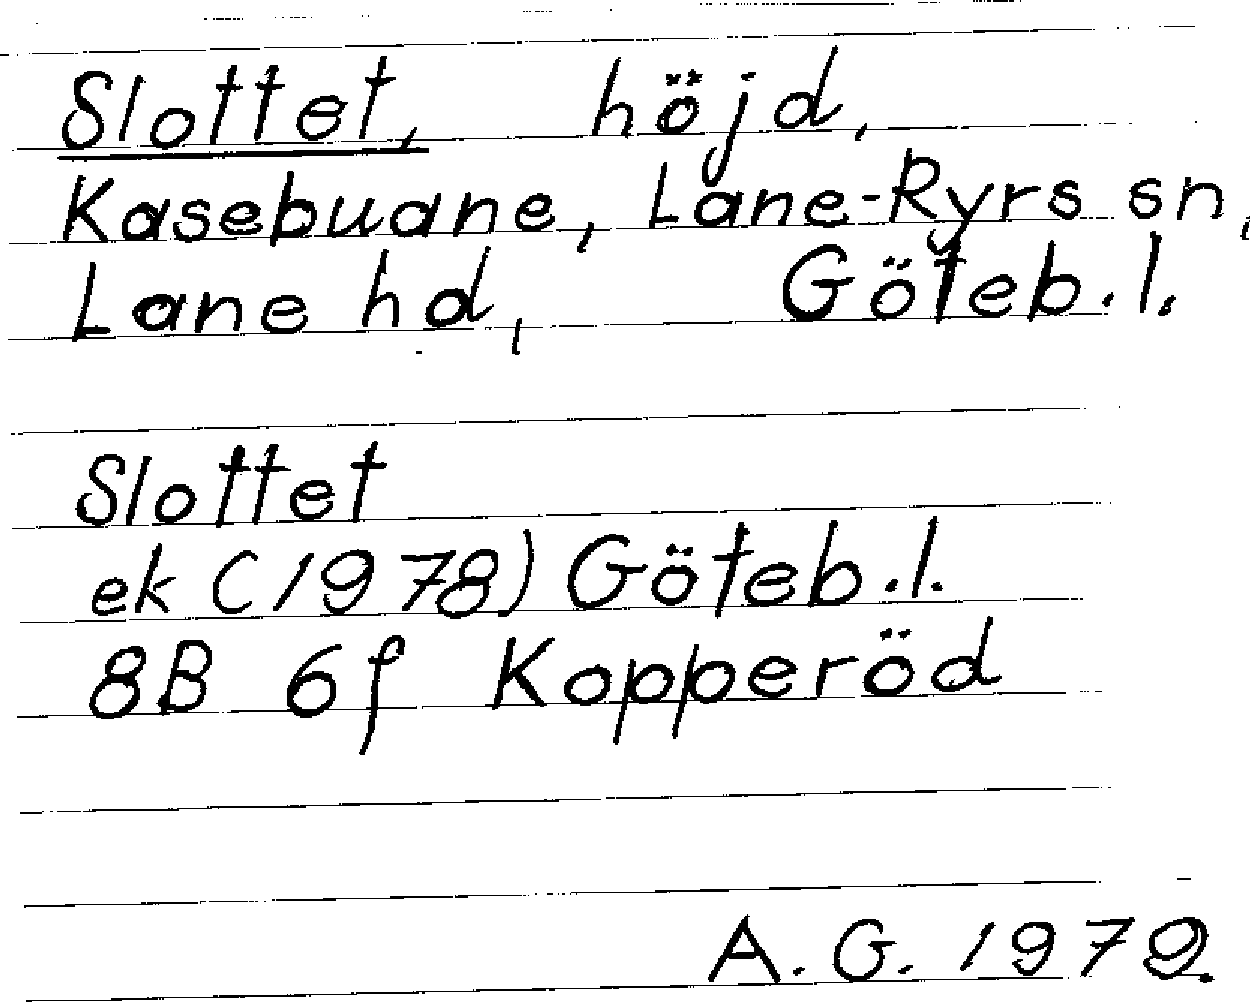 Slottet, höjd,
Kasebuane, Lane-Ryrs sn,
Lane hd, Göteb. l.
Slottet
ek (1978) Göteb. l.
8B 6f Kopperöd
A. G. 1979.